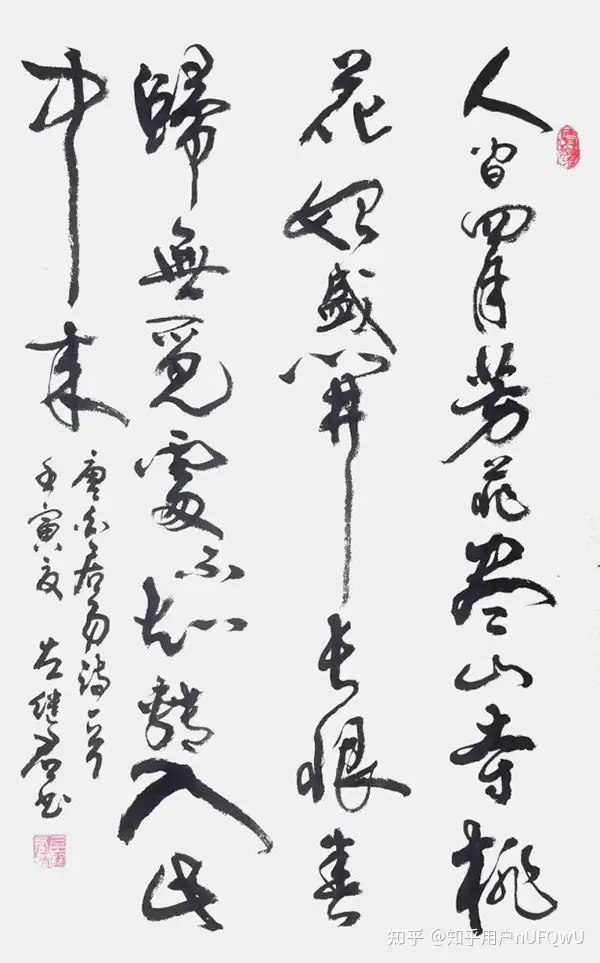 人间四月芳菲尽山寺桃
花始盛開长恨春
歸無覓處不知轉入此
中来
唐白居易诗一首
壬寅夏 继君书
知乎 @知乎用户nUFQwU